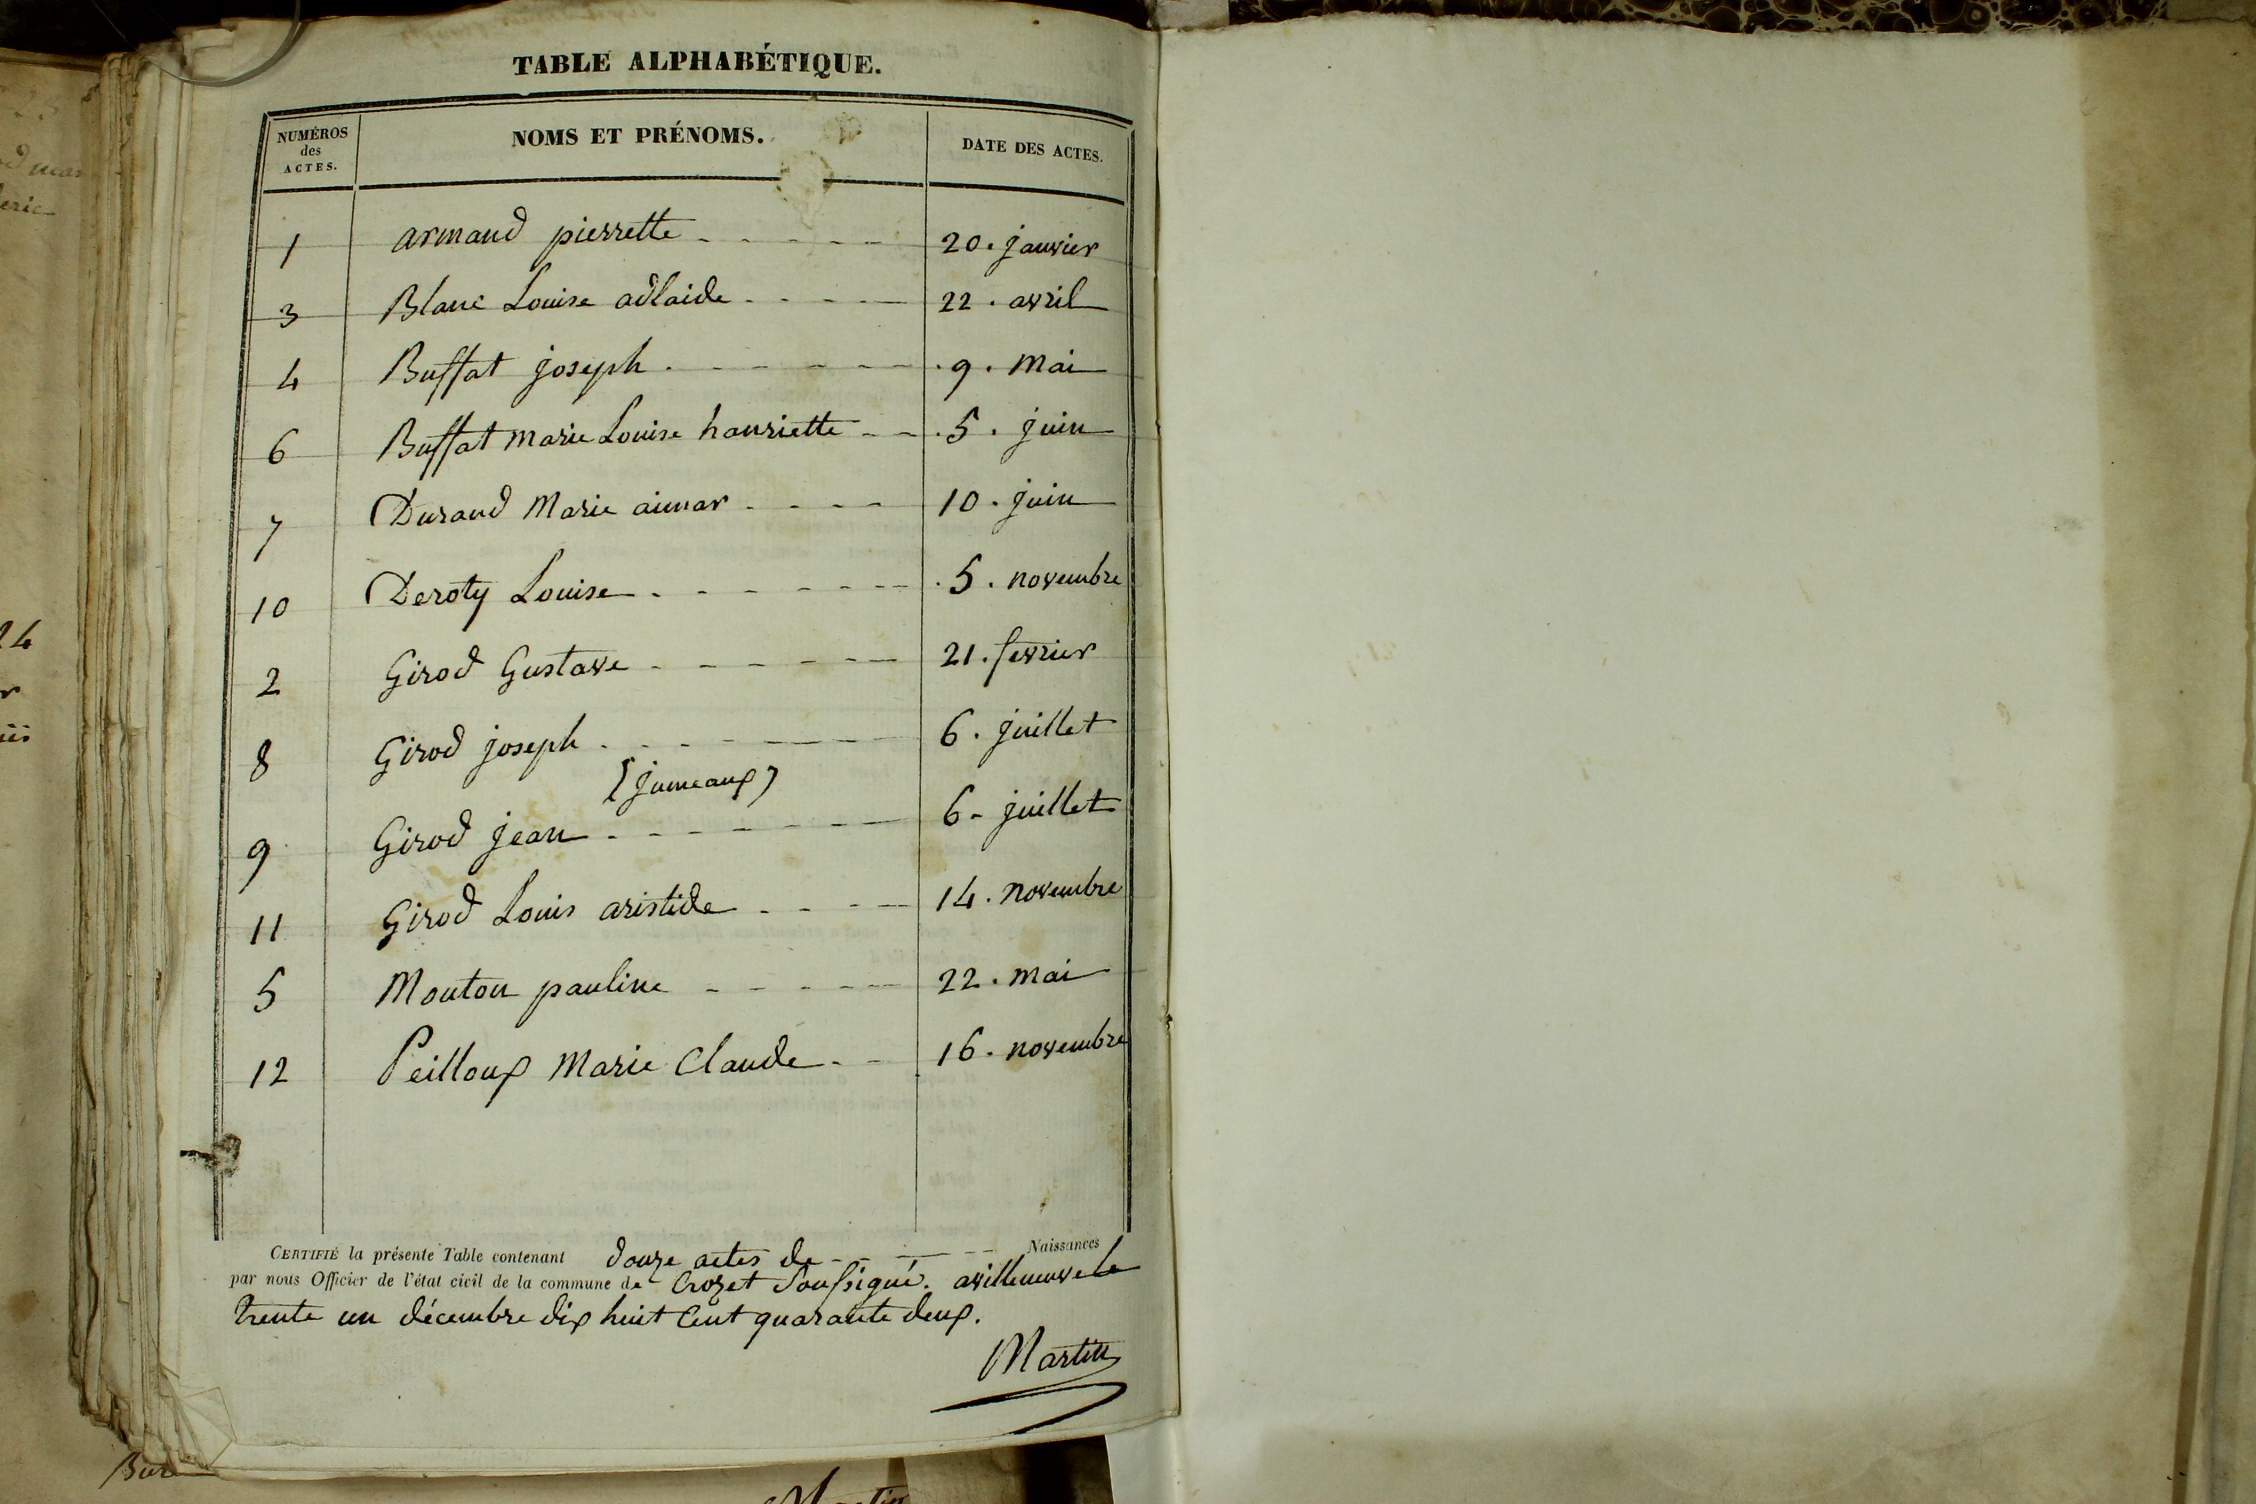 TABLE ALPHABÉTIQUE.
NUMÉROS des ACTES. NOMS ET PRÉNOMS. DATE DES ACTES.
1 armand pierrette 20. janvier
3 Blanc Louise adlaide 22. avril
4 Buffat joseph 9. Mai
6 Buffat marie Louise hanriette 5. juin
7 Durand Marie aimar 10. juin
10 Deroty Louise 5. novembre
2 Girod Gustave 21. fevrier
8 Girod joseph 6. juillet
(jumeaux)
9 Girod jean 6 - juillet
11 Girod Louis aristide 14. novembre
5 Mouton pauline 22. mai
12 Peilloux Marie Claude 16. novembre
CERTIFIÉ la présente Table contenant douze actes de Naissances
par nous Officier de l'état civil de la commune de Crozet Soussigné. avilleneuve le
trente un décembre dix huit Cent quarante deux.
Martin